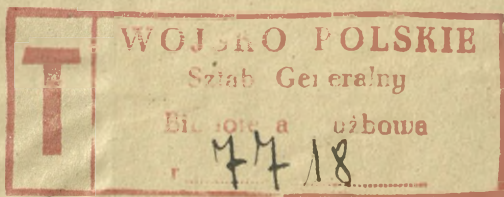 T
WOJSKO POLSKIE
Sztab Generalny
Biblioteka Służbowa
Nr 7718